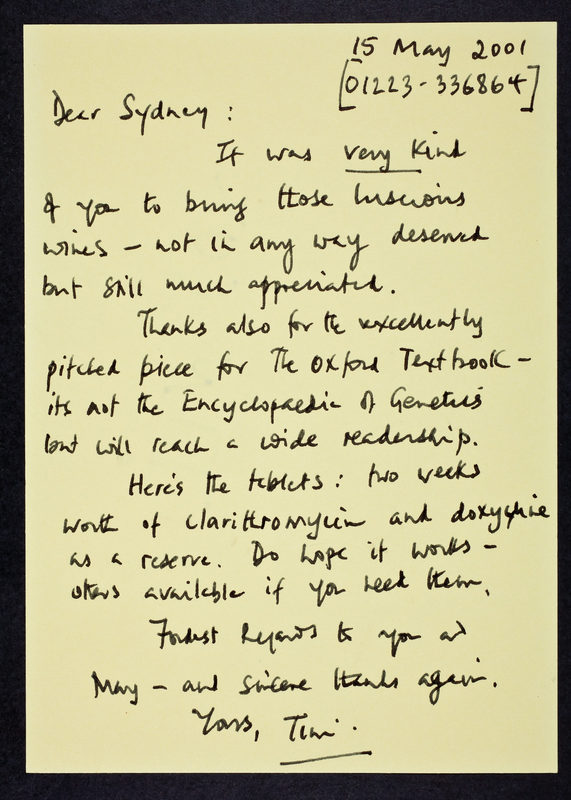 15 May 2001
[01223-336864]
Dear Sydney:
It was very kind
of you to bring those luscious
wines - not in any way deserved
but still much appreciated.
Thanks also for the excellently
pitched piece for The Oxford Textbook -
its not the Encyclopaedia of Genetics
but will reach a wide readership.
Here's the tablets: two weeks
worth of clarithromycin and doxycycline
as a reserve. Do hope it works -
others available if you need them.
Fondest Regards to you and
May - and sincere thanks again.
Yours, Tim.